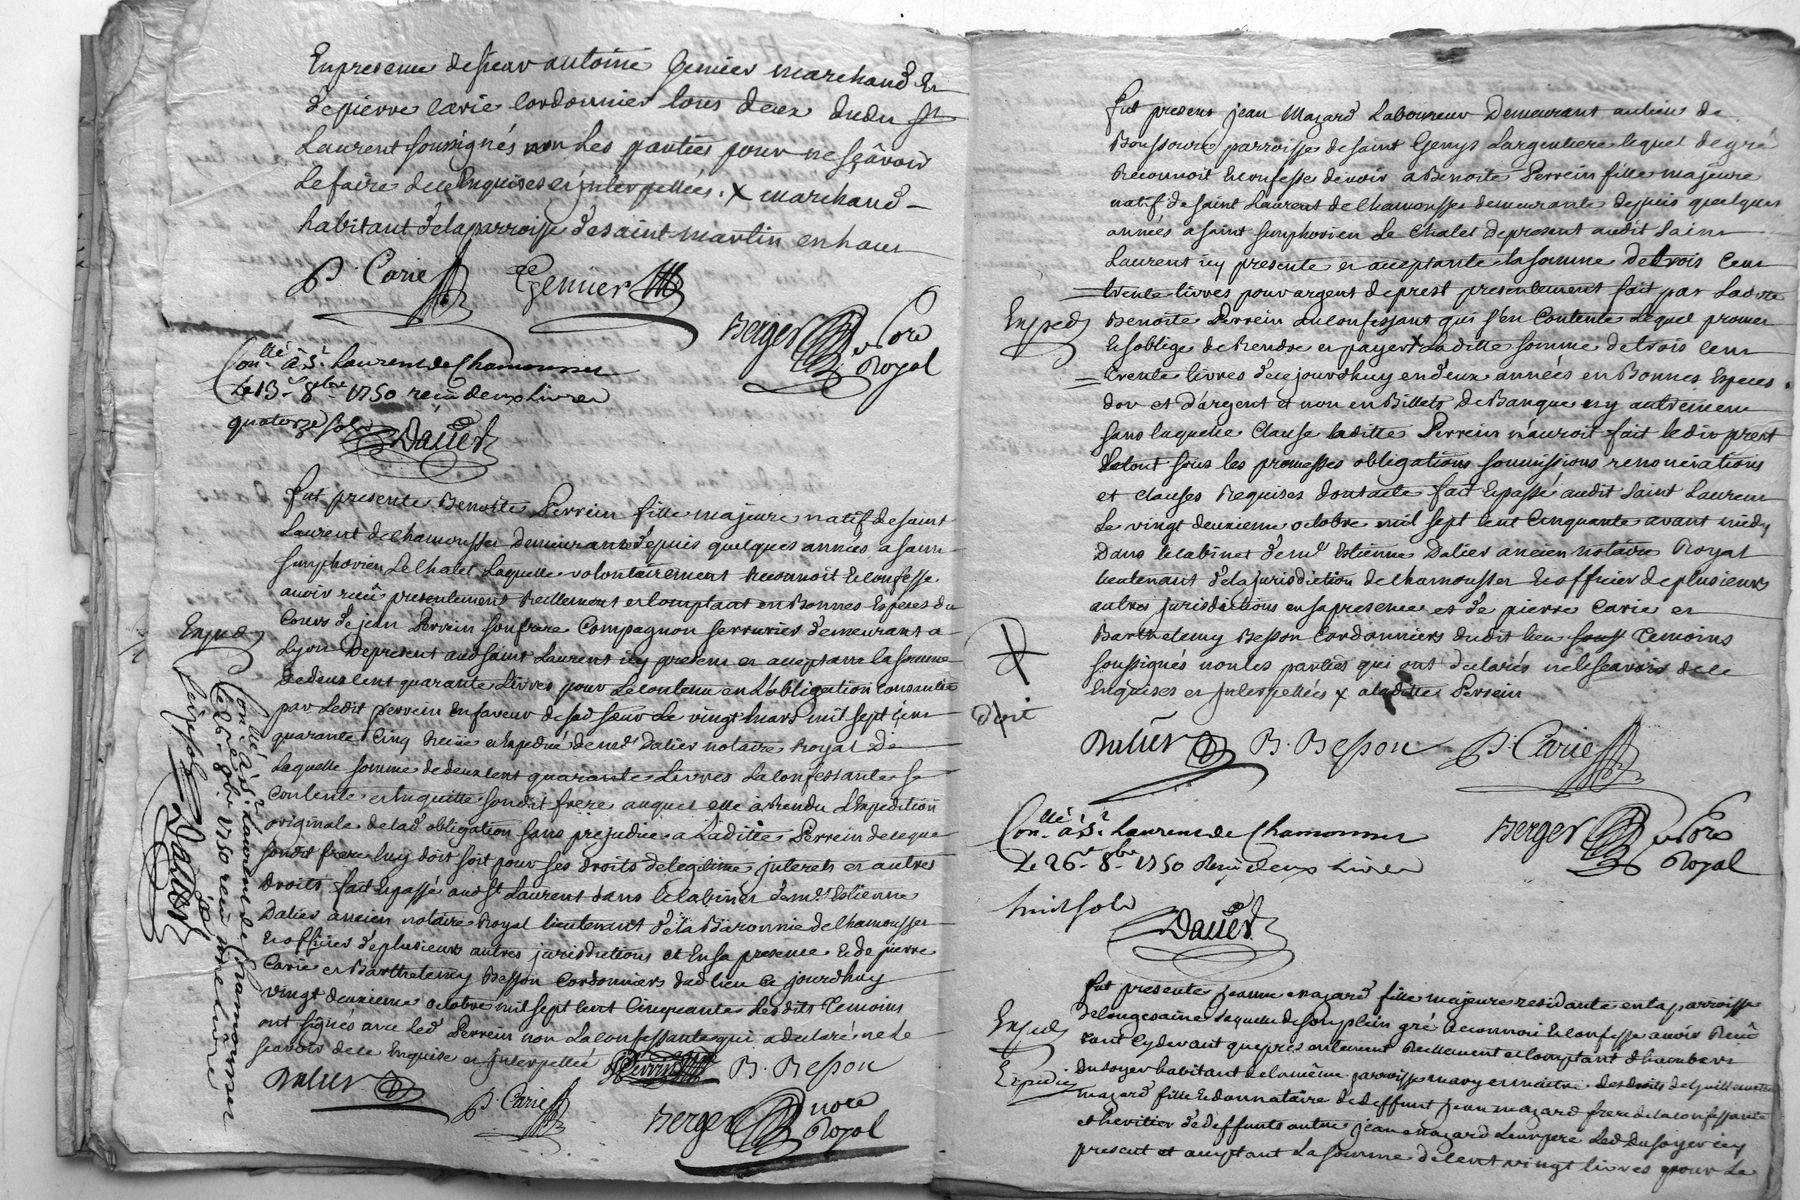 En presence de sieur antoine Genier marchand Et
de pierre Carie Cordonnier tous deux dudit St
Laurent soussignés non Les parties pour ne sçavoir
Le faire de ce Enquises et jnterpellées. x marchand
habitant de la parroisse de saint martin en haut
P. Carie Genier
Berger Nore Royal
Conllé à St. Laurent de Chamousset
Le 13e 8bre 1750 reçu deux Livres
quatorze sols
Dalier
fut presente Benoite Perrein fille majeure natif de saint
Laurent de chamousset demeurante depuis quelques années a saint
simphorien Le Chatel Laquelle volontairement reconnoit Et confesse
avoir reçu presentement Reellement et Comptant en Bonnes Especes du
Cours de jean Perrein son frere Compagnon serrurier demeurant a
Lyon de present aud saint Laurent icy present et acceptant la somme
de deux cent quarante Livres pour Le contenu en L'obligation consantie
par Ledit perrein en faveur de sad sœur Le vingt mars mil sept cent
quarante Cinq Reçue et Expedié de me Dalier notaire Royal De
Laquelle somme de deux cent quarante Livres La confessante se
Contente et En quitte son dit frere auquel elle a Rendu L'expedition
originale de lad obligation sans prejudice a Laditte Perrein de ce que
sondit frere luy doit soit pour ses droits de legitime jnterets et autres
droits, fait Et passé aud St Laurent dans le cabinet de me Estienne
Dalier ancien notaire Royal Lieutenant de la Baronnie de chamousset
Et officier de plusieurs autres jurisdictions et En sa presence Et de pierre
Carie et Barthelemy Besson Cordonniers dud lieu Ce jourdhuy
vingt deuxieme octobre mil sept cent Cinquante Les dits Temoins
ont signés avec led Perrein non La confessante qui a declaré ne Le
scavoir de ce Enquise et jnterpellée Perrein B. Besson
Dalier P. Carie
Berger Nore Royal
Exped
Conllé à St. Laurent de Chamousset
Le 26e 8bre 1750 reçu une Livre
Dalier
fut present jean Mazard Laboureur Demeurant au lieu de
Boussoure parroisse de saint Genys Largentiere lequel de gré
Reconnoit Et confesse devoir a Benoite Perrein fille majeure
natif de saint Laurent de Chamousset demeurante depuis quelques
années a saint simphorien Le Chatel de present audit saint
Laurent icy presente et acceptante la somme de trois Cent
trente livres pour argent de prest presentement fait par Laditte
Exped
Benoite Perrein au confessant qui s'en Contente Lequel promet
Et soblige de Rendre et payer x Laditte somme de trois Cent
trente livres dece jourdhuy en deux années en Bonnes Especes
dor et d'argent et non en Billets de Banque ny autrement
sans laquelle Clause laditte Perrein n'auroit fait ledit prest
Le tout sous les promesses obligations soumissions renonciations
et clauses Requises dont acte fait Et passé audit saint Laurent
Le vingt deuxieme octobre mil sept cent Cinquante avant midy
Dans le cabinet de me Estienne Dalier ancien notaire Royal
Lieutenant de la jurisdiction de chamousset Et officier de plusieurs
autres jurisdictions en sa presence et de pierre Carie et
Barthelemy Besson Cordonniers dudit lieu Temoins
soussignés non les parties qui ont declarés ne le scavoir de ce
Enquises et jnterpellées x a laditte Perrein
doit
Dalier B. Besson P. Carie
Berger Nore Royal
Conllé à St. Laurent de Chamousset
Le 26e 8bre 1750 Reçu deux Livres
huit sols
Dalier
fut presente jeanne mazard fille majeure residante en la parroisse
de Longesaine Laquelle de son plein gré Reconnoit Et confesse avoir Reçu
Exped
tant cy devant que presentement Reellement et Comptant d'humbert
Dusoyer habitant de la même parroisse mary et maitre des droits de Guillemette
Expedié
mazard fille Et donnataire de deffunt jean mazard frere de la confessante
et heritier de deffunt autre jean mazard Leur pere Led Dusoyer icy
present et acceptant La somme de cent vingt livres pour Le